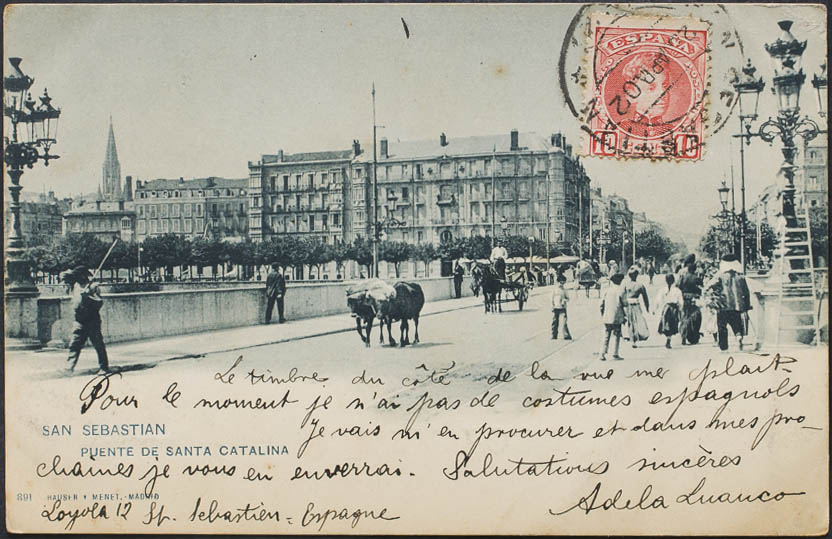 ESPAÑA
ABR.02
10 CENTS 10
Le timbre du côté de la vue me plait.
Pour le moment je n'ai pas de costumes espagnols
Je vais m'en procurer et dans mes pro-
chaines je vous en enverrai. Salutations sincères
Adela Luanco
SAN SEBASTIÁN
PUENTE DE SANTA CATALINA
891 HAUSER Y MENET.-MADRID
Loyola 12 St. Sebastien = Espagne